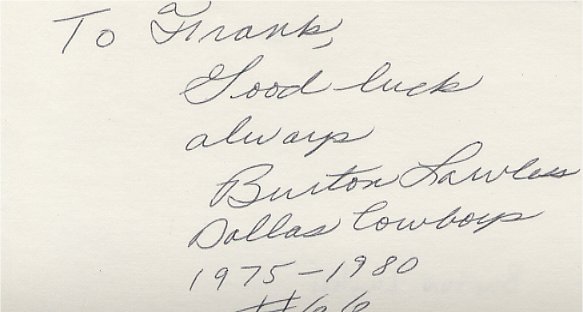 To Frank,
Good luck
always
Burton Lawless
Dallas Cowboys
1975-1980
#66